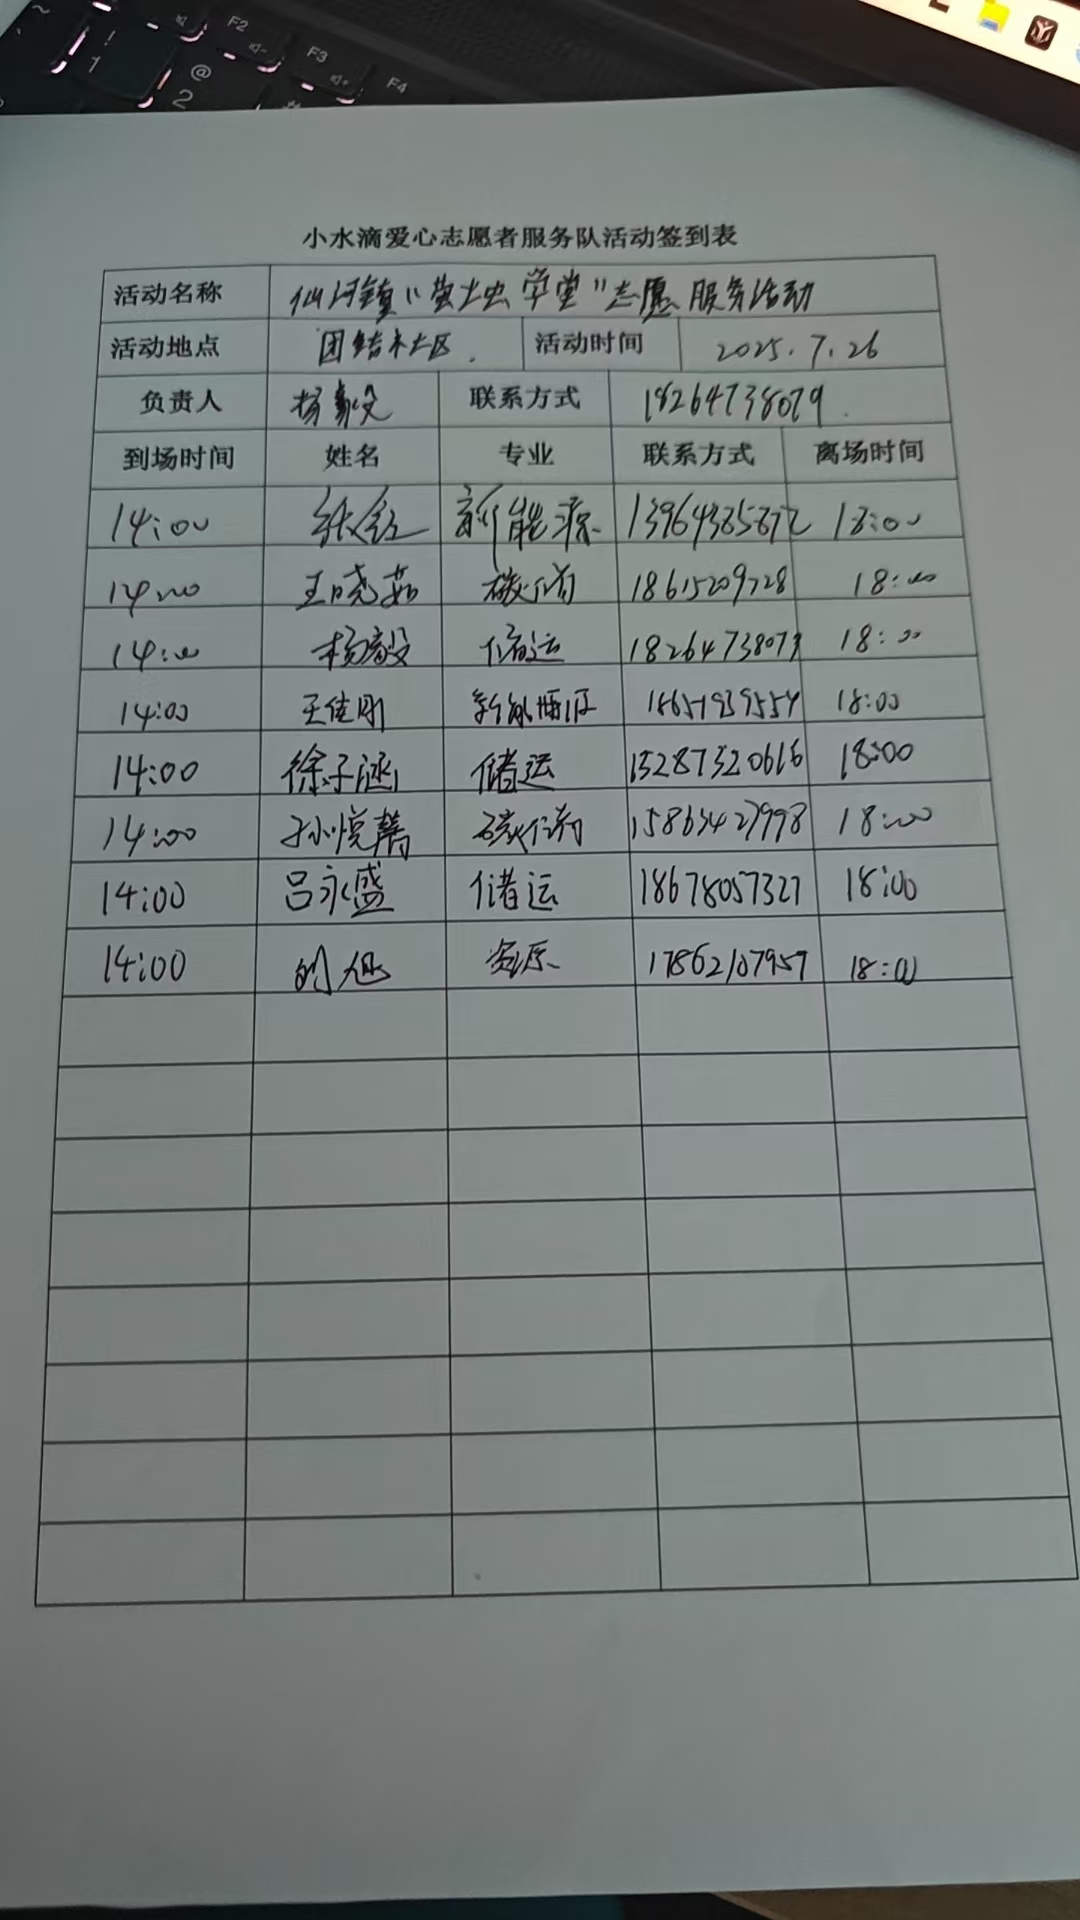 F2
F3
F4
!
1
@
2
小水滴爱心志愿者服务队活动签到表
活动名称 仙河镇“萤火虫学堂”志愿服务活动
活动地点 团结社区. 活动时间 2025.7.26
负责人 杨毅 联系方式 18264738079
到场时间 姓名 专业 联系方式 离场时间
14:00 张 新能源 18:00
14:00 王晓茹 碳储 18615209728 18:00
14:00 杨毅 储运 18264738079 18:00
14:00 王佳刚 新能源 18:00
14:00 徐子涵 储运 15287320616 18:00
14:00 孙悦 碳储 15863427998 18:00
14:00 吕永盛 储运 18678057327 18:00
14:00 刘旭 资源 17862107957 18:00